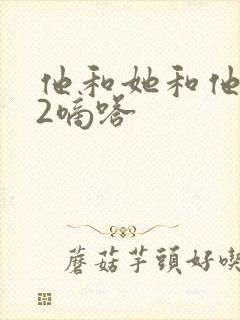 他和她和他
2嘀嗒
蘑菇芋頭好喫